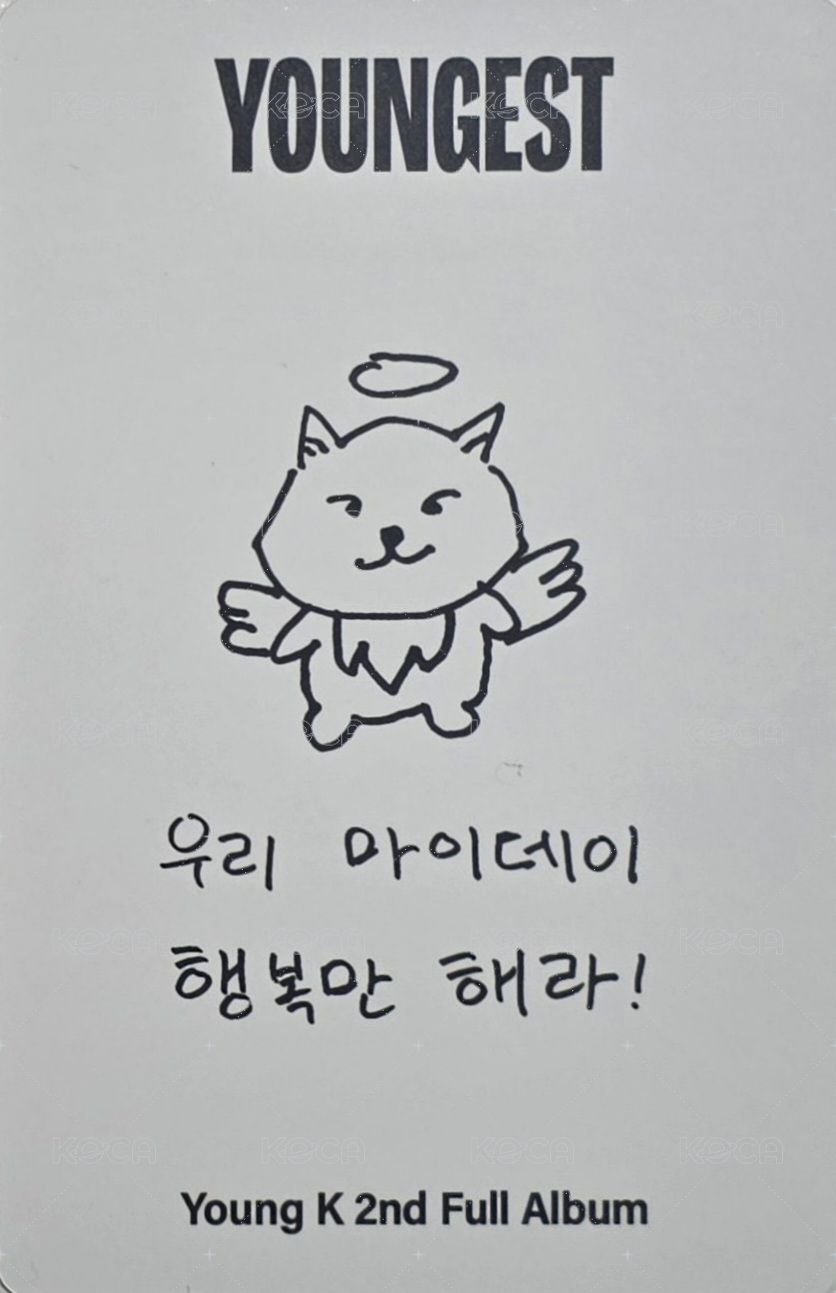 YOUNGEST
우리 마이데이
행복만 해라!
Young K 2nd Full Album